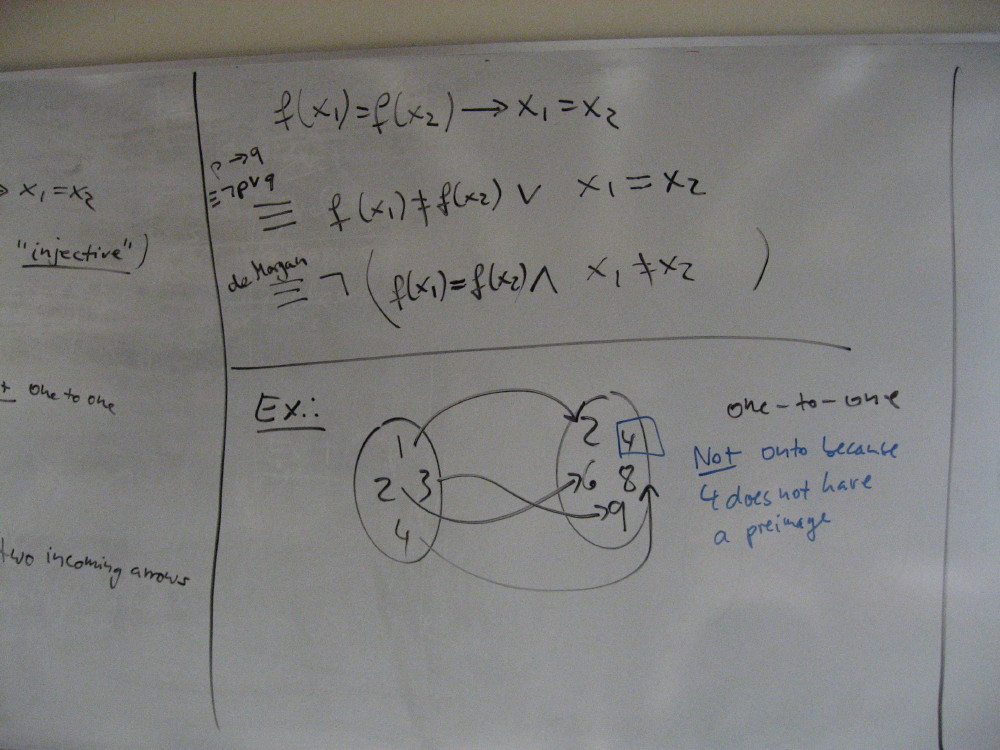 x₁ = x₂
"injective")
one to one
two incoming arrows
f(x₁) = f(x₂) → x₁ = x₂
p → q
≡ ¬p ∨ q
≡ f(x₁) ≠ f(x₂) ∨ x₁ = x₂
de Morgan
≡ ¬ ( f(x₁) = f(x₂) ∧ x₁ ≠ x₂ )
Ex.:
1
2 3
4
2 4
6 8
9
one-to-one
Not onto because
4 does not have
a preimage